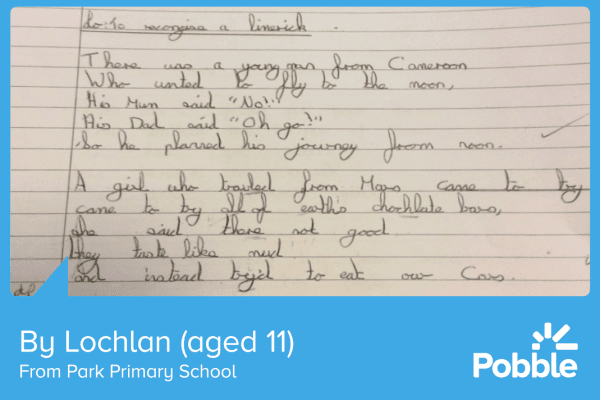 Lo: To recognise a limerick.
There was a young man from Cameroon
Who wnted to fly to the moon,
His Mum said "No!"
His Dad said "Oh go!"
So he planned his journey from noon.
A girl who travled from Mars came to try
came to try all of eaths chochlate bars,
she said there not good
they taste like mud
and instead tryed to eat our Cars.
By Lochlan (aged 11)
From Park Primary School
Pobble